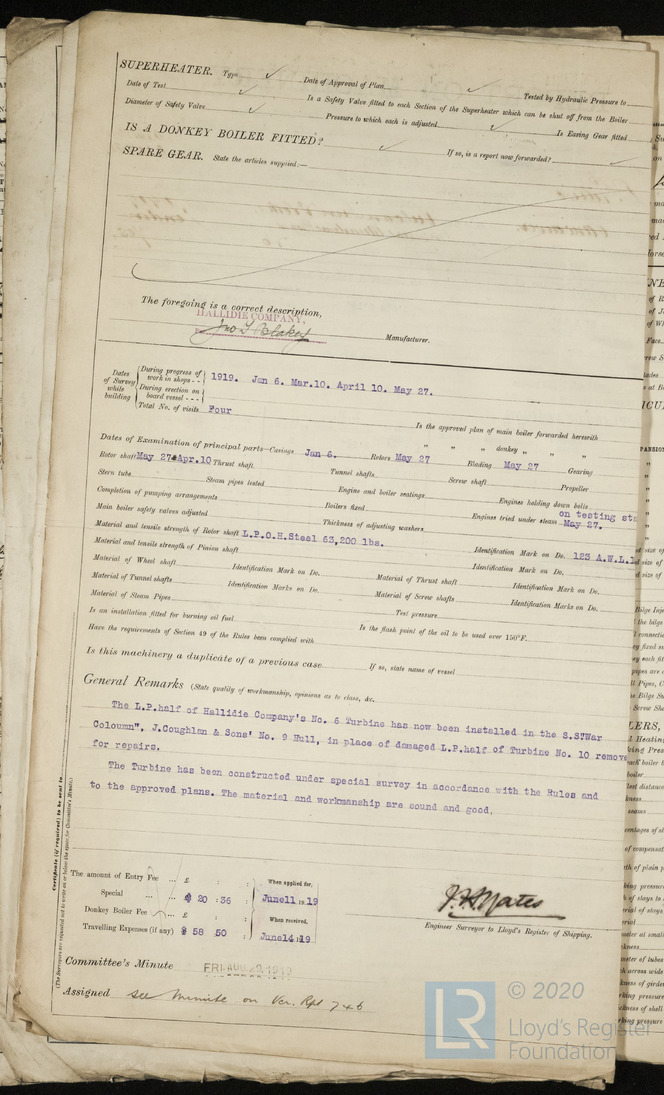 SUPERHEATER. Type ✓ Date of Approval of Plan ✓ Tested by Hydraulic Pressure to
Date of Test ✓ Is a Safety Valve fitted to each Section of the Superheater which can be shut off from the Boiler
Diameter of Safety Valve ✓ Pressure to which each is adjusted ✓ Is Easing Gear fitted
IS A DONKEY BOILER FITTED? ✓ If so, is a report now forwarded? ✓
SPARE GEAR. State the articles supplied:—
The foregoing is a correct description,
HALLIDIE COMPANY,
Jno T Blakey Manufacturer.
Dates of Survey while building
During progress of work in shops - - 1919. Jan 6. Mar.10. April 10. May 27.
During erection on board vessel - - -
Total No. of visits Four
Is the approved plan of main boiler forwarded herewith
" " " donkey " " "
Dates of Examination of principal parts—Casings Jan 6. Rotors May 27 Blading May 27 Gearing
Rotor shaft May 27 & Apr.10 Thrust shaft Tunnel shafts Screw shaft Propeller
Stern tube Steam pipes tested Engine and boiler seatings Engines holding down bolts
Completion of pumping arrangements Boilers fixed Engines tried under steam on testing sta
May 27.
Main boiler safety valves adjusted Thickness of adjusting washers
Material and tensile strength of Rotor shaft L.P.O.H.Steel 63,200 lbs. Identification Mark on Do. 123 A.W.L.
Material and tensile strength of Pinion shaft Identification Mark on Do.
Material of Wheel shaft Identification Mark on Do. Material of Thrust shaft Identification Mark on Do.
Material of Tunnel shafts Identification Marks on Do. Material of Screw shafts Identification Marks on Do.
Material of Steam Pipes Test pressure
Is an installation fitted for burning oil fuel Is the flash point of the oil to be used over 150°F.
Have the requirements of Section 49 of the Rules been complied with
Is this machinery a duplicate of a previous case If so, state name of vessel
General Remarks (State quality of workmanship, opinions as to class, &c.
The L.P.half of Hallidie Company's No. 6 Turbine has now been installed in the S.S."War
Coloumn", J.Coughlan & Sons' No. 9 Hull, in place of damaged L.P.half of Turbine No. 10 remove
for repairs.
The Turbine has been constructed under special survey in accordance with the Rules and
to the approved plans. The material and workmanship are sound and good.
Certificate (if required) to be sent to
(The Surveyors are requested not to write on or below the space for Committee's Minute.)
The amount of Entry Fee ... £ : : When applied for,
Special ... ... $ 20 : 36 June 11 19 19
Donkey Boiler Fee ... £ : : When received,
Travelling Expenses (if any) $ 58 50 : June 14 19
J.H. Yates
Engineer Surveyor to Lloyd's Register of Shipping.
Committee's Minute FRI. AUG. 29. 1919
Assigned See Minute on Ver. Rpt 746
© 2020
Lloyd's Register
Foundation